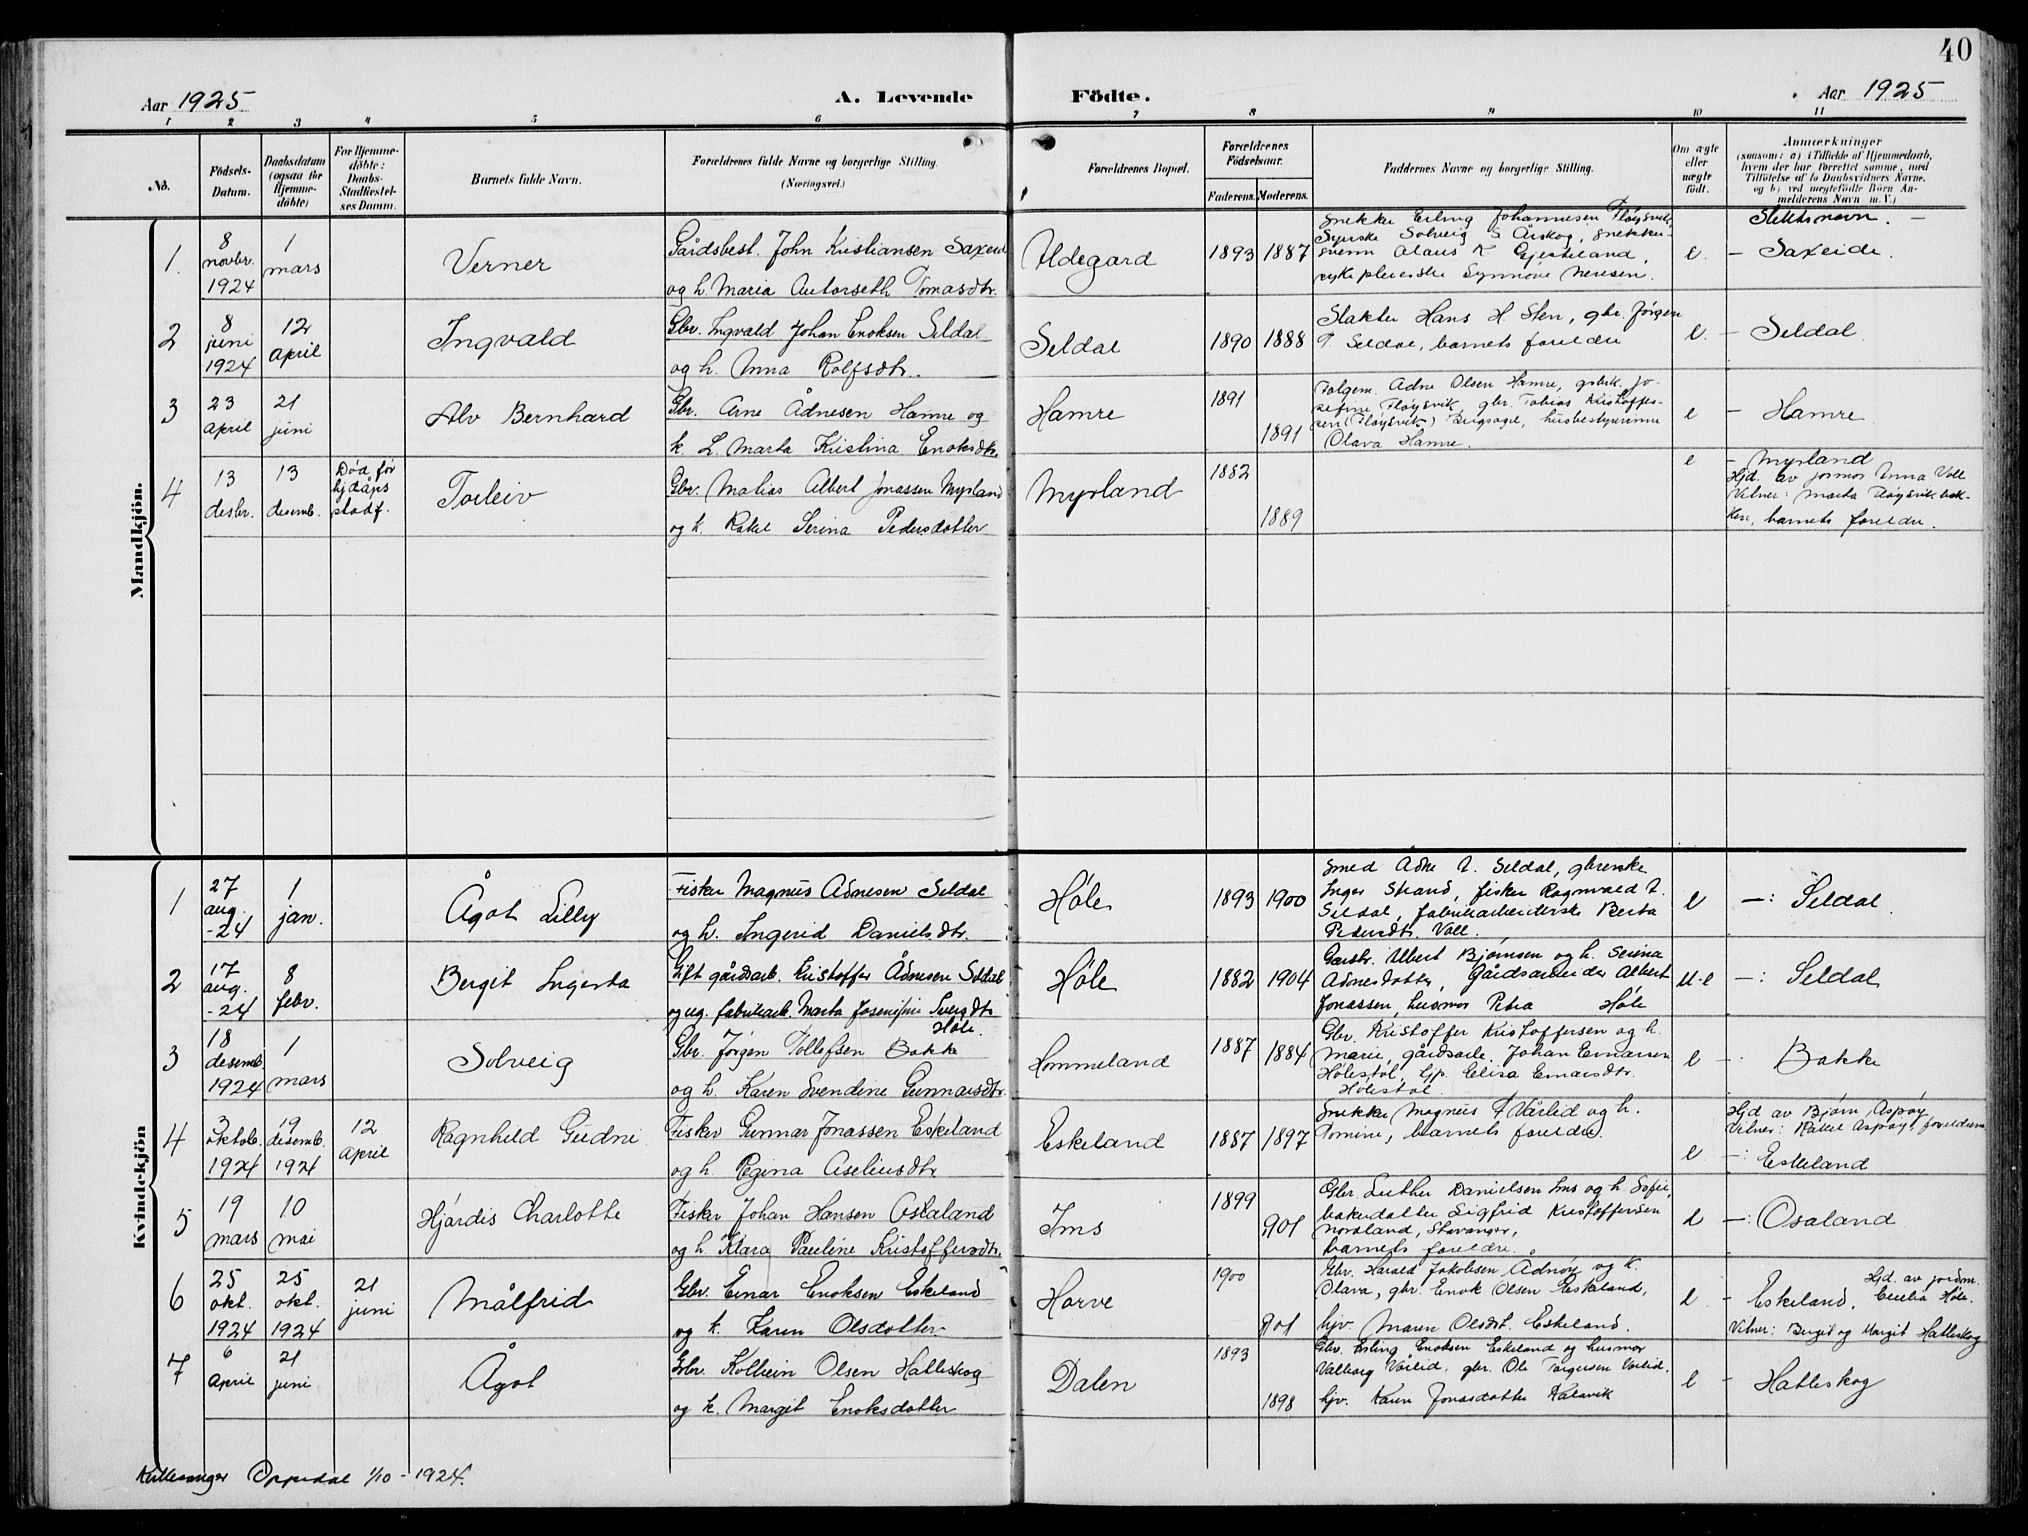 40
Aar 1925
A. Levende
Födte.
Aar 1925
1 2 3 4 5 6 7 8 9 10 11
No.
Födsels-
Datum.
Daabsdatum
(ogsaa for
Hjemme-
döbte)
For Hjemme-
döbte:
Daabs-
Stadfæstel-
ses Datum.
Barnets fulde Navn.
Forældrenes fulde Navne og borgerlige Stilling
(Næringsvei.)
Forældrenes Bopæl.
Forældrenes
Födselsaar.
Faderens. Moderens.
Faddernes Navne og borgerlige Stilling.
Om ægte
eller
uægte
födt.
Anmærkninger
(saasom: a) i Tilfælde af Hjemmedaab,
hvem der har forrettet samme, med
Tilföielse af to Daabsvidners Navne,
og b) ved uegtefödte Börn An-
melderens Navn m. V.)
Mandkjön.
1.
8
novbr.
1924
1
mars
Verner
Gårdsbest. John Kristiansen Saxeid
og h. Maria Autorseth Tomasdtr.
Aldegard
1893 1887
Snekker Erling Johannesen Fløysvik,
Syerske Solveig S Årskog, snekker-
svenn Olaus K Gjesteland,
sykepleierske Synnøve Meresen.
e.
Slektsnavn. -
- Saxeide.
2
8
juni
1924
12
april
Ingvald
Gbr. Ingvald Johan Enoksen Seldal
og h. Anna Rolfsdtr.
Seldal
1890 1888
Slakter Hans H Sten, gbr. Jørgen
T. Seldal, barnets foreldre
e.
- Seldal
3
23
april
21
juni
Alv Bernhard
Gbr. Arne Ådnesen Hamre og
k. L. Marta Kristina Enoksdtr.
Hamre
1891
1891
Folgem. Adne Olsen Hamre, gbrk. Jo-
sefine Fløysvik, gbr. Tobias Kristoffer-
sen (Fløysvik) husbestyrerinne
Olava Hamre.
e
- Hamre
4
13
desbr.
13
desemb.
Død før
hjdåps
stadf.
Torleiv
Gbr. Matias Albert Jonassen Myrland
og k. Rakel Serina Pedersdotter
Myrland
1882
1889
e
- Myrland
Hjd. av jormor Anna Voll
Vitner: Marta Fløysvikbak-
ken, barnets foreldre.
Kvindekjön
1
27
aug.
-24
1
jan.
Ågot Lilly
Fisker Magnus Adnesen Seldal
og h. Ingerid Danielsdtr.
Høle
1893 1900
Smed Adne A. Seldal, gbrerske
Inger Strand, fisker Ragnvald A.
Seldal, fabrikarbeiderske Berta
Pedersdtr. Voll.
e
-: Seldal.
2
17
aug.
-24
8
febr.
Bergit Ingerta
Gift gårdsarb. Kristoffer Ådnesen Seldal
og ug. fabrikarb. Marta Josefine Sversdtr
Høle.
Høle
1882 1904
Garstr. Albert Bjørnsen og h. Serina
Adnesdotter, Gårdsarbeider Albert
Jonassen, husmor Petra Høle
u-e
-: Seldal
3
18
desemb.
1924
1
mars
Solveig
Gbr. Jørgen Tollefsen Bakke
og h. Karen Svendine Gunnarsdtr.
Hommeland
1887 1884
Gbr. Kristoffer Kristoffersen og h.
Marie, gårdsarb. Johan Einarsen
Hølestøl, tjp. Elisa Einarsdtr.
Hølestøl
e
-: Bakke
4
3
oktob.
1924
19
desemb.
1924
12
april
Ragnhild Gudni
Fisker Gunnar Jonassen Eskeland
og h. Regina Aseliusdtr.
Eskeland
1887 1897
Snekker Magnus T Vårlid og h.
Tomine, barnets foreldre.
e
Hjd av Bjørn Aspøy
Vitner: Rakel Aspøy, foreldrene
-: Eskeland
5
19
mars
10
mai
Hjørdis Charlotte
Fisker Johan Hansen Osaland
og h. Klara Pauline Kristoffersdtr.
Ims
1899
1901
Gbr Luther Danielsen Ims og h. Sofie,
bakerdatter Sigfrid Kristoffersen
Nordland, Stavanger,
barnets foreldre.
e
-: Osaland
6
25
okt.
1924
25
okt.
1924
21
juni
Målfrid
Gbr. Einar Enoksen Eskeland
og k. Karen Olsdotter
Horve
1900
1901
Gbr. Harald Jakobsen Adnøy og k.
Olava, gbr. Enok Olsen Eskeland,
hjv. Maren Olsdt. Eskeland.
e
Hjd. av jordm.
- Eskeland, Cecilia Høle.
Vitner: Bergit og Margit Hatleskog
7
6
april
21
juni
Ågot
Gbr. Kolbein Olsen Hatleskog
og k. Margit Enoksdotter
Dalen
1893
1898
Gbr. Erling Enoksen Eskeland og husmor
Valborg Vårlid, gbr. Ole Torgersen Vårlid.
hjv. Karen Jonasdotter Kalavik
e
- Hatleskog
Kirkesanger Oppedal 1/10 - 1924.